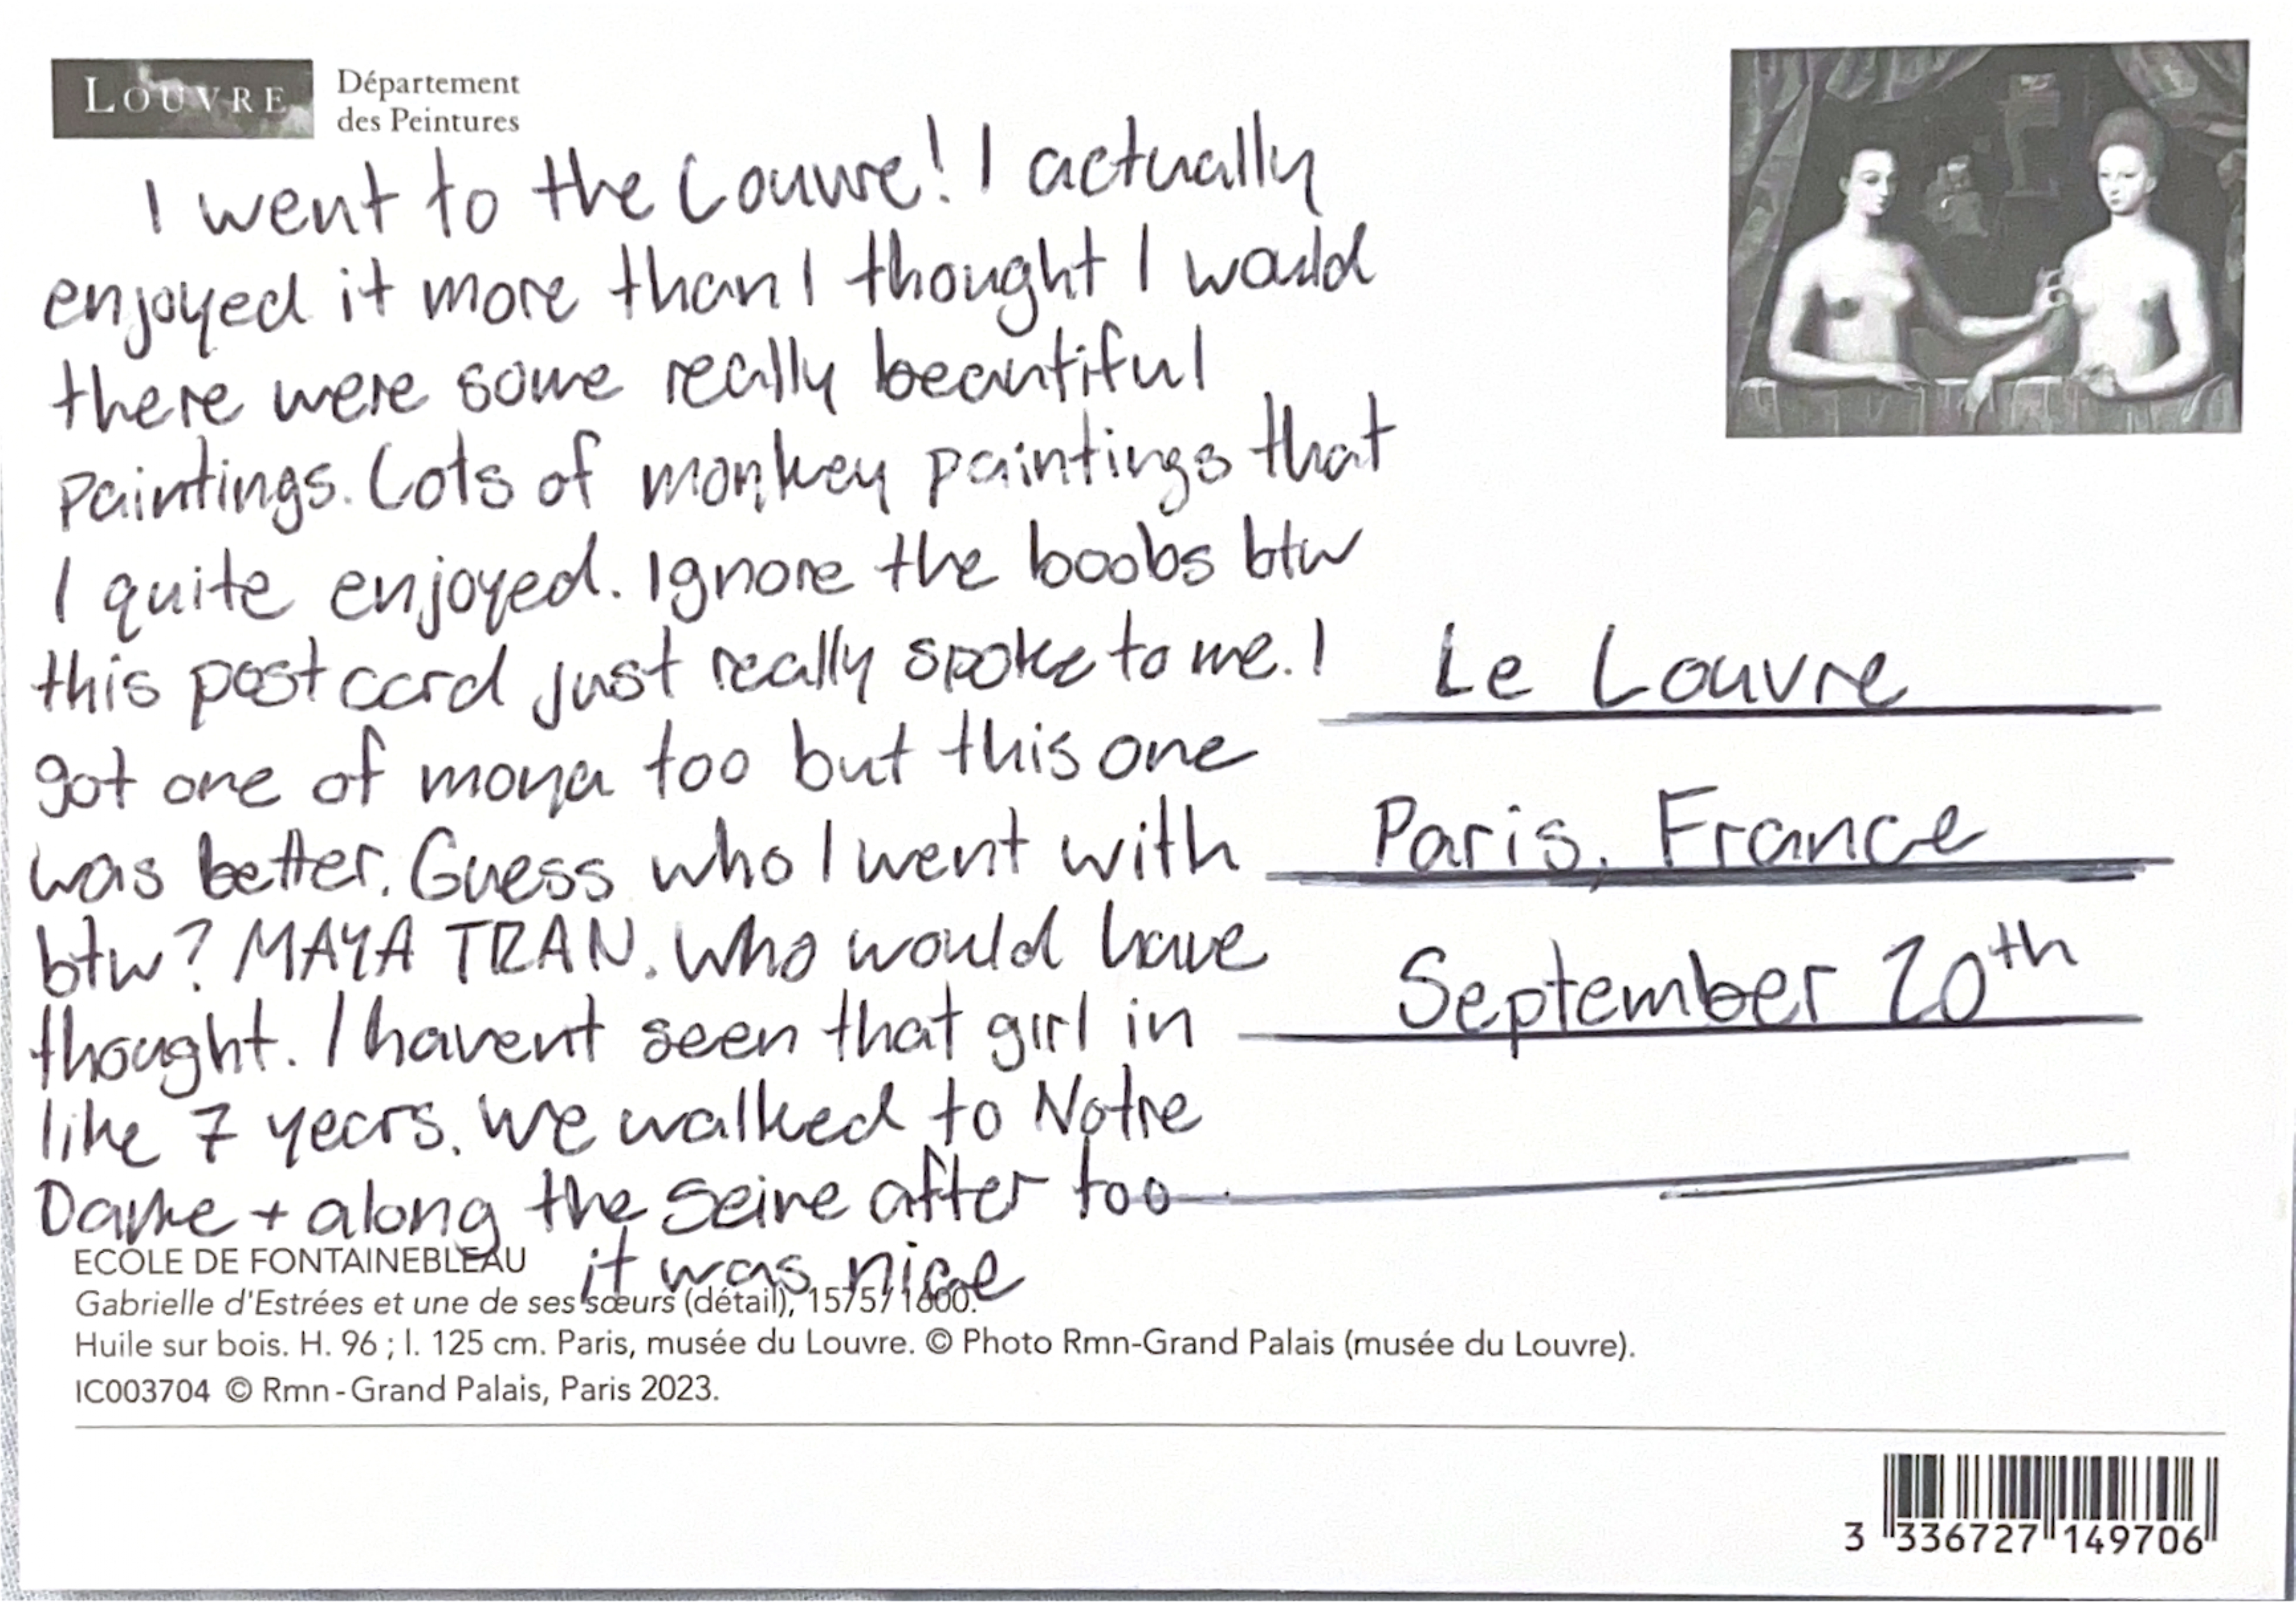 LOUVRE
Département
des Peintures
I went to the Louvre! I actually
enjoyed it more than I thought I would
there were some really beautiful
paintings. Lots of monkey paintings that
I quite enjoyed. Ignore the boobs btw
this postcard just really spoke to me. I
got one of mona too but this one
was better. Guess who I went with
btw? MAYA TRAN. Who would have
thought. I havent seen that girl in
like 7 years. We walked to Notre
Dame + along the Seine after too
it was nice
Le Louvre
Paris, France
September 20th
ECOLE DE FONTAINEBLEAU
Gabrielle d'Estrées et une de ses sœurs (détail), 1575/1600.
Huile sur bois. H. 96 ; l. 125 cm. Paris, musée du Louvre. © Photo Rmn-Grand Palais (musée du Louvre).
IC003704 © Rmn-Grand Palais, Paris 2023.
3 336727 149706